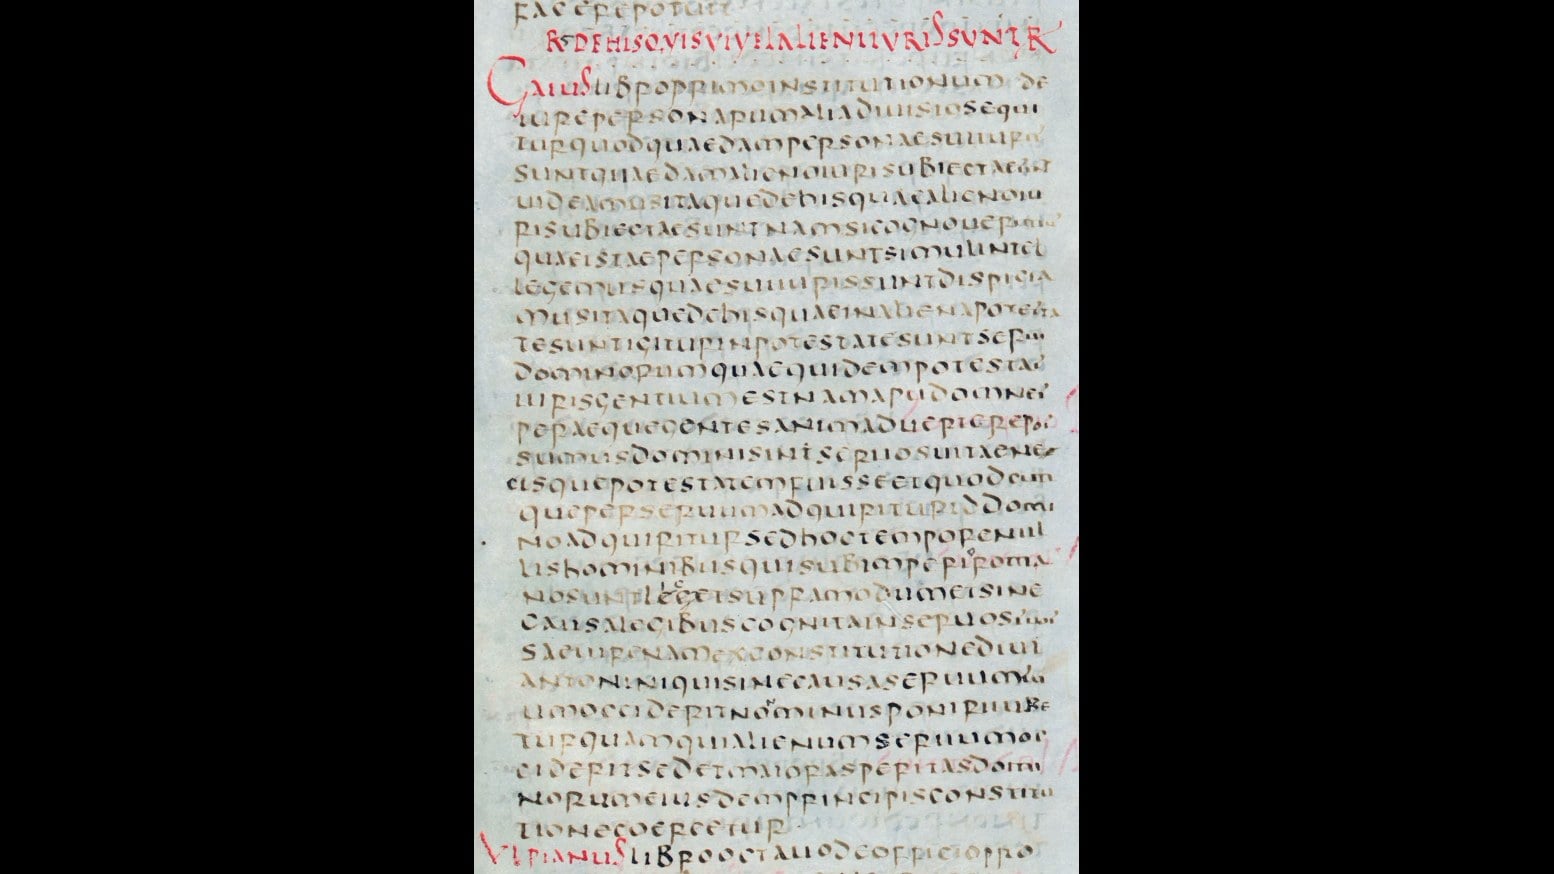 FACEREPOTUIT
R DEHISQUISUIUELALIENIIURISSUNT R
GAIUSLIBROPRIMOINSTITUTIONUM DE
IUREPERSONARUMALIADIUISIOSEQUI
TURQUODQUAEDAMPERSONAESUIIURIS
SUNTQUAEDAMALIENOIURISUBIECTAESUNT
UIDEAMUSITAQUEDEHISQUAEALIENOIU
RISUBIECTAESUNTNAMSICOGNOUERIMUS
QUAEISTAEPERSONAESUNTSIMULINTEL
LEGEMUSQUAESUIIURISSUNTDISPICIA
MUSITAQUEDEHISQUAEINALIENAPOTESTA
TESUNTIGITURINPOTESTATESUNTSERUI
DOMINORUMQUAEQUIDEMPOTESTAS
IURISGENTIUMESTNAMAPUDOMNES
PERAEQUEGENTESANIMADUERTEREPOS
SUMUSDOMINISINSERUOSUITAENE
CISQUEPOTESTATEMFUISSEETQUODCUM
QUEPERSERUUMADQUIRITURIDDOMI
NOADQUIRITURSEDHOCTEMPORENUL
LISHOMINIBUSQUISUBIMPERIOROMA
NOSUNTLICETSUPRAMODUMETSINE
CAUSALEGIBUSCOGNITAINSERUOSSUOS
SAEUIRENAMEXCONSTITUTIONEDIUI
ANTONINIQUISINECAUSASERUUMSU
UMOCCIDERITNONMINUSPUNIRIIUBE
TURQUAMQUIALIENUMSERUUMOC
CIDERITSEDETMAIORASPERITASDOMI
NORUMEIUSDEMPRINCIPISCONSTITU
TIONECOERCETUR
ULPIANUSLIBROOCTAUODEOFFICIOPRO